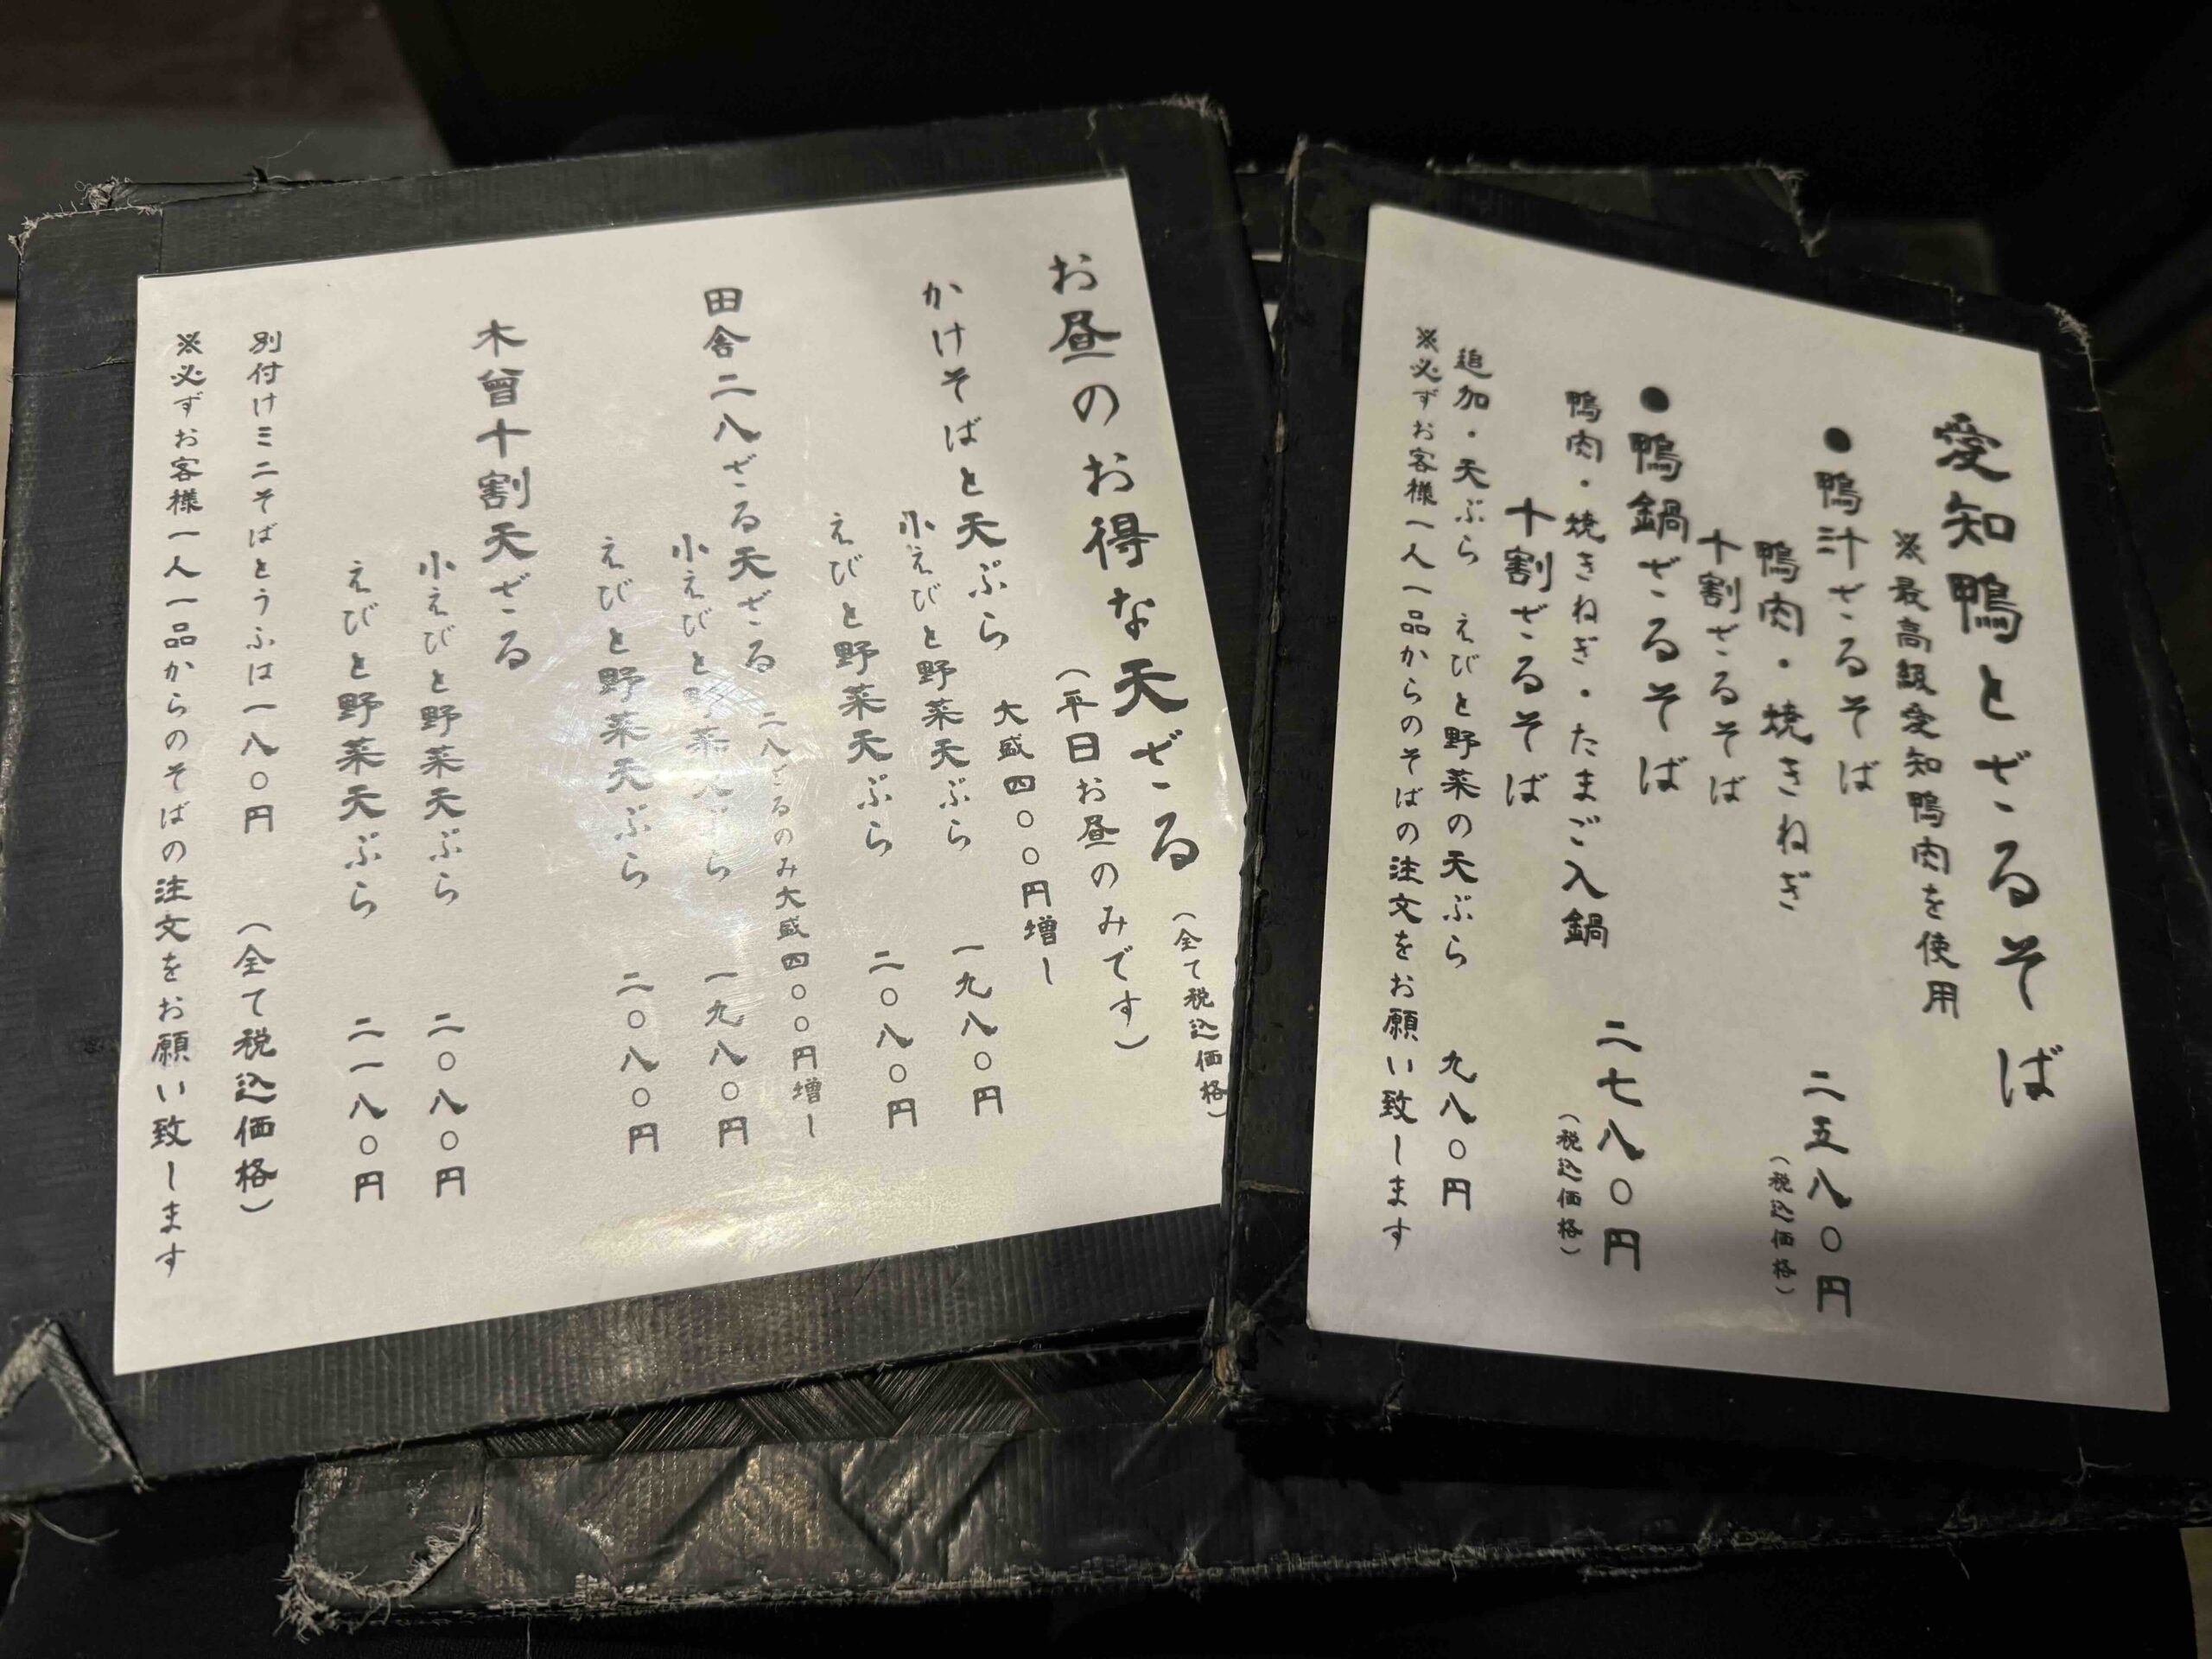 愛知鴨とざるそば
※最高級愛知鴨肉を使用
●鴨汁ざるそば 二五八〇円
(税込価格)
鴨肉・焼きねぎ
十割ざるそば
●鴨鍋ざるそば 二七八〇円
(税込価格)
鴨肉・焼きねぎ・たまご入鍋
十割ざるそば
追加・天ぷら えびと野菜の天ぷら 九八〇円
※必ずお客様一人一品からのそばの注文をお願い致します
お昼のお得な天ざる (全て税込価格)
(平日お昼のみです)
かけそばと天ぷら 大盛四〇〇円増し
小えびと野菜天ぷら 一九八〇円
えびと野菜天ぷら 二〇八〇円
田舎二八ざる天ざる 二八ざるのみ大盛四〇〇円増し
小えびと野菜天ぷら 一九八〇円
えびと野菜天ぷら 二〇八〇円
木曾十割天ざる
小えびと野菜天ぷら 二〇八〇円
えびと野菜天ぷら 二一八〇円
別付けミニそばとうふは一八〇円 (全て税込価格)
※必ずお客様一人一品からのそばの注文をお願い致します